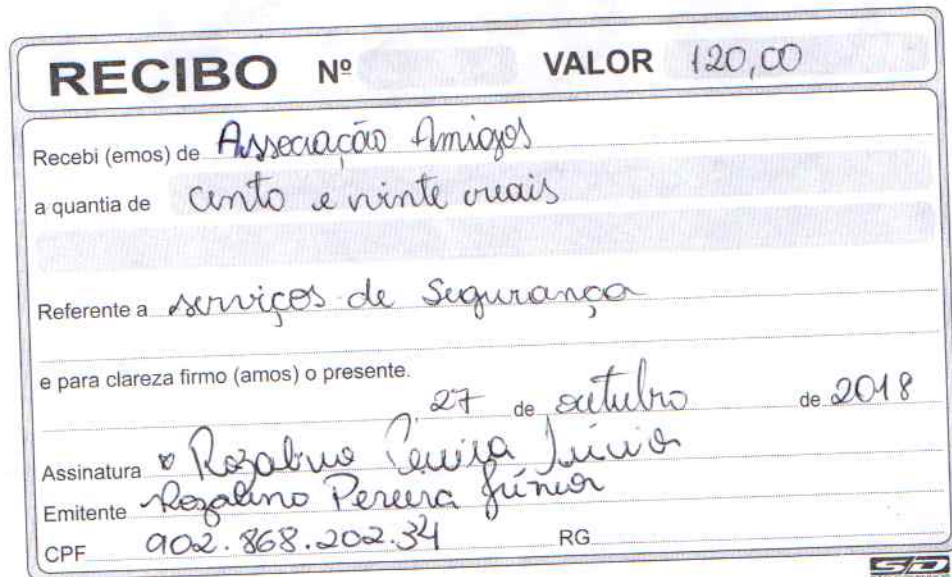 RECIBO Nº VALOR 120,00
Recebi (emos) de Associação Amigos
a quantia de Cento e vinte reais
Referente a serviços de Segurança
e para clareza firmo (amos) o presente.
27 de outubro de 2018
Assinatura x Rozalino Pereira Júnior
Emitente Rozalino Pereira Júnior
CPF 902.868.202.34 RG
SD